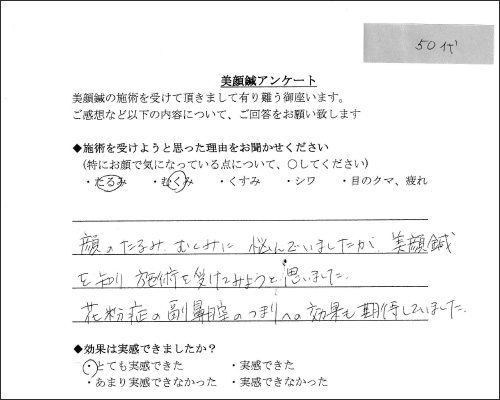 50代
美顔鍼アンケート
美顔鍼の施術を受けて頂きまして有り難う御座います。
ご感想など以下の内容について、ご回答をお願い致します
◆施術を受けようと思った理由をお聞かせください
(特にお顔で気になっている点について、○してください)
・たるみ ・むくみ ・くすみ ・シワ ・目のクマ、疲れ
顔のたるみ、むくみに悩んでいましたが、美顔鍼
を知り施術を受けてみようと思いました。
花粉症の副鼻腔のつまりへの効果も期待していました。
◆効果は実感できましたか?
・とても実感できた ・実感できた
・あまり実感できなかった ・実感できなかった